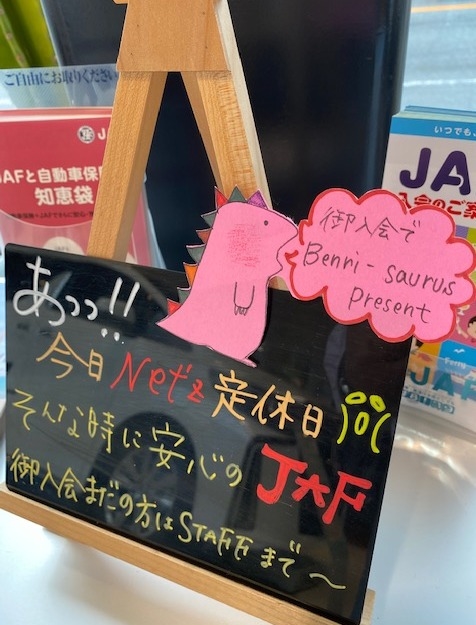 ご自由にお取りください
JAFと自動車保
知恵袋
いつでもJ
JA
入会のご
御入会で
Benri-saurus
present
あっっ!!
今日Netz定休日
そんな時に安心のJAF
御入会まだの方はSTAFFまで～